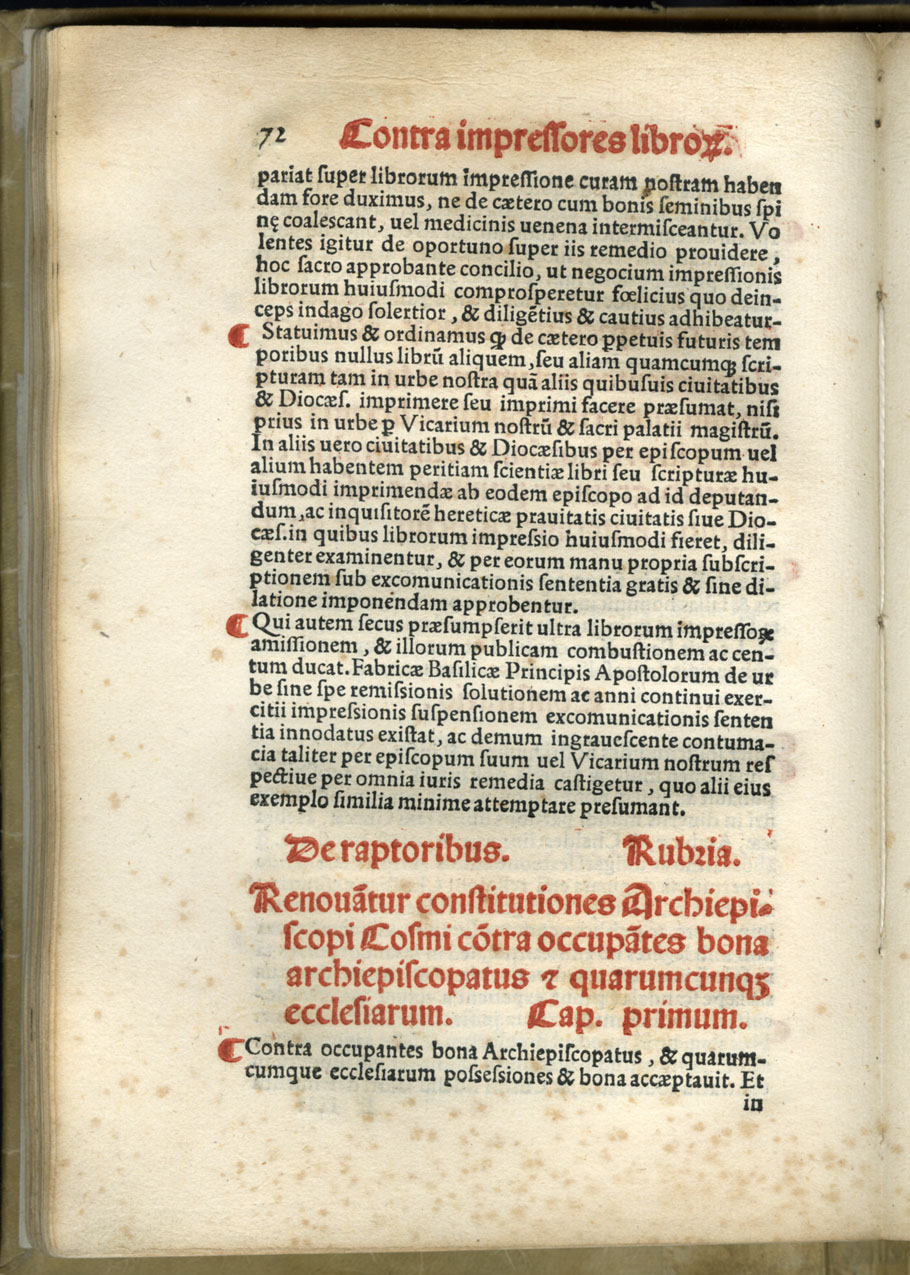 72 Contra impreſſores libroꝝ.
pariat ſuper librorum impreſſione curam noſtram haben
dam fore duximus, ne de cætero cum bonis ſeminibus ſpi
nę coaleſcant, uel medicinis uenena intermiſceantur. Vo
lentes igitur de oportuno ſuper iis remedio prouidere,
hoc ſacro approbante concilio, ut negocium impreſſionis
librorum huiuſmodi comproſperetur fœlicius quo dein-
ceps indago ſolertior, & diligẽtius & cautius adhibeatur-
Statuimus & ordinamus ꝙ de cætero ꝑpetuis futuris tem
poribus nullus librũ aliquem, ſeu aliam quamcumqꝫ ſcri-
pturam tam in urbe noſtra quã aliis quibuſuis ciuitatibus
& Diocæſ. imprimere ſeu imprimi facere præſumat, niſi
prius in urbe ꝑ Vicarium noſtrũ & ſacri palatii magiſtrũ.
In aliis uero ciuitatibus & Diocæſibus per epiſcopum uel
alium habentem peritiam ſcientiæ libri ſeu ſcripturæ hu-
iuſmodi imprimendæ ab eodem epiſcopo ad id deputan-
dum, ac inquiſitorẽ hereticæ prauitatis ciuitatis ſiue Dio-
cæſ. in quibus librorum impreſſio huiuſmodi fieret, dili-
genter examinentur, & per eorum manu propria ſubſcri-
ptionem ſub excomunicationis ſententia gratis & ſine di-
latione imponendam approbentur.
Qui autem ſecus præſumpſerit ultra librorum impreſſoꝝ
amiſſionem, & illorum publicam combuſtionem ac cen-
tum ducat. Fabricæ Baſilicæ Principis Apoſtolorum de ur
be ſine ſpe remiſsionis ſolutionem ac anni continui exer-
citii impreſsionis ſuſpenſionem excomunicationis ſenten
tia innodatus exiſtat, ac demum ingraueſcente contuma-
cia taliter per epiſcopum ſuum uel Vicarium noſtrum reſ
pectiue per omnia iuris remedia caſtigetur, quo alii eius
exemplo ſimilia minime attemptare preſumant.
De raptoribus. Rubꝛia.
Renouãtur conſtitutiones Archiepi-
ſcopi Coſmi cõtra occupãtes bona
archiepiſcopatus ⁊ quarumcunqꝫ
eccleſiarum. Cap. primum.
Contra occupantes bona Archiepiſcopatus, & quarum-
cumque eccleſiarum poſſeſsiones & bona accæptauit. Et
in